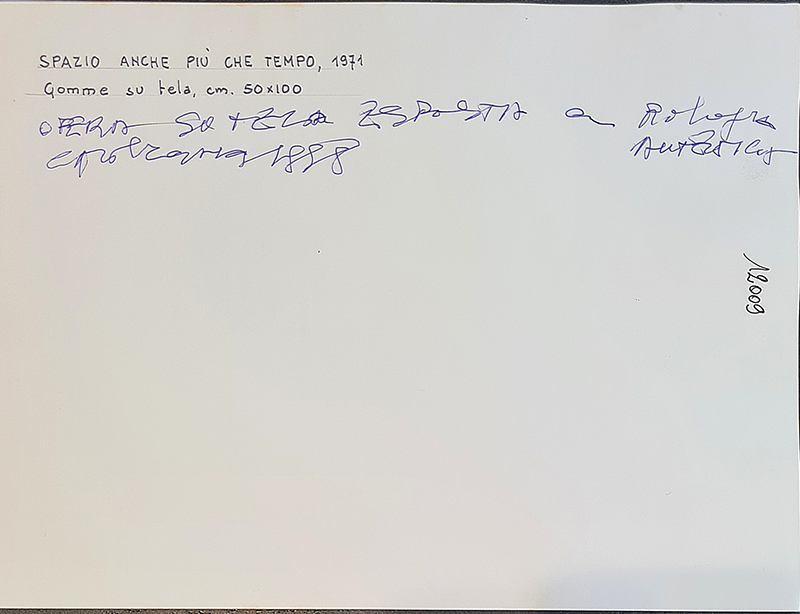 SPAZIO ANCHE PIÙ CHE TEMPO, 1971
Gomme su tela, cm. 50x100
OPERA SU TELA ESPOSTA a Bologna
1998 AUTENTICA
12009